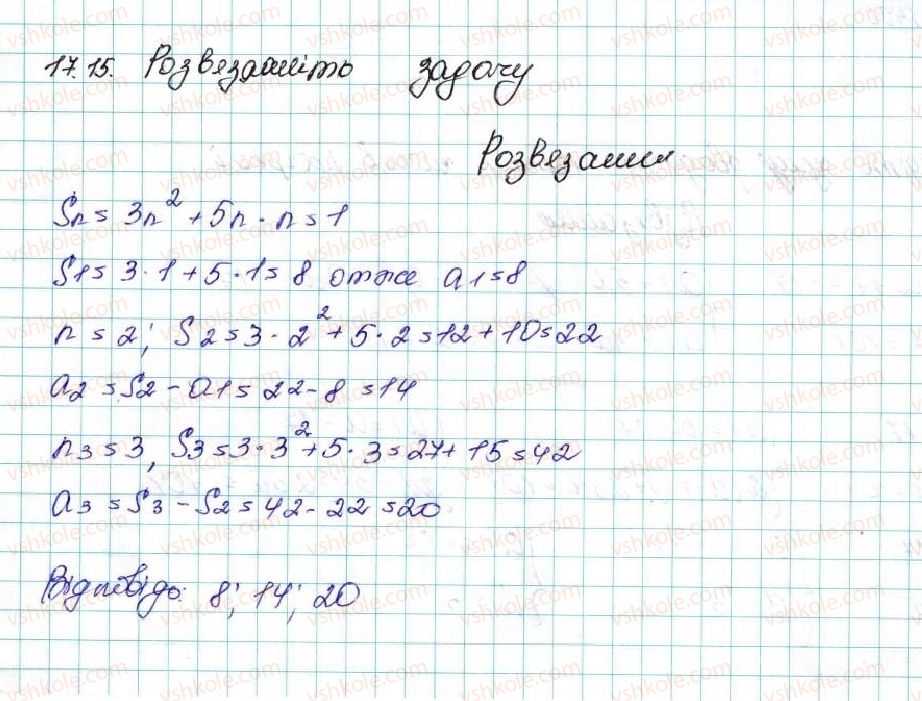 17.15. Розвязанити задачу
Розвязання
Sn = 3n² + 5n · n = 1
S1 = 3·1 + 5·1 = 8 отже a1 = 8
n = 2; S2 = 3·2² + 5·2 = 12 + 10 = 22
a2 = S2 - a1 = 22 - 8 = 14
n3 = 3, S3 = 3·3² + 5·3 = 27 + 15 = 42
a3 = S3 - S2 = 42 - 22 = 20
Відповідь: 8; 14; 20
vshkole.com